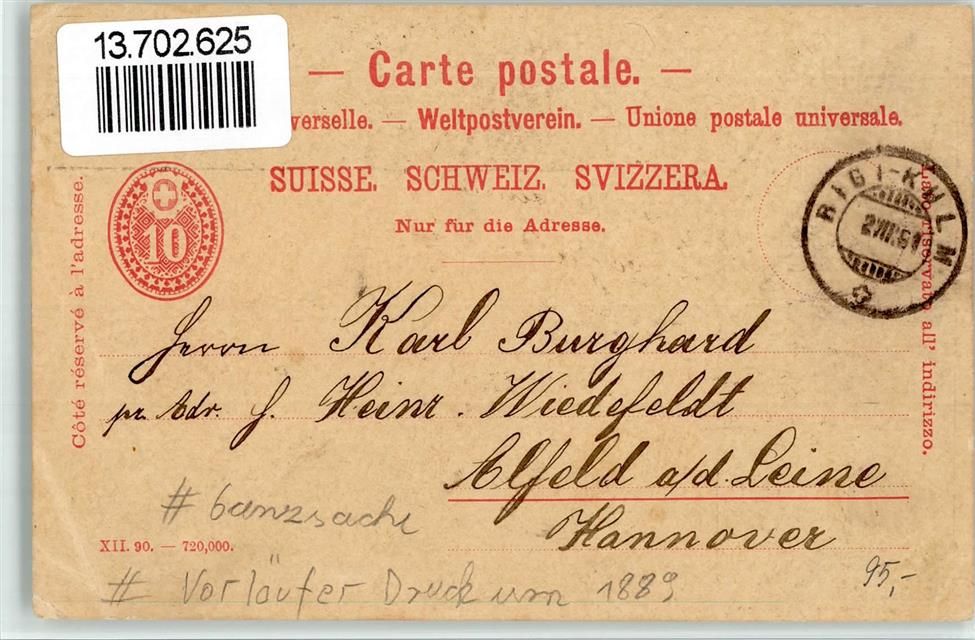 13.702.625
— Carte postale. —
verselle. — Weltpostverein. — Unione postale universale.
SUISSE. SCHWEIZ. SVIZZERA.
Nur für die Adresse.
Côté réservé à l'adresse.
10
RIGI-KULM
Lato riservato all' indirizzo.
Herrn Karl Burghard
pr. Adr. H. Heinr. Wiedefeldt
Alfeld a/d. Leine
Hannover
# Ganzsache
XII. 90. — 720,000.
# Vorläufer Druck um 1889
95,-